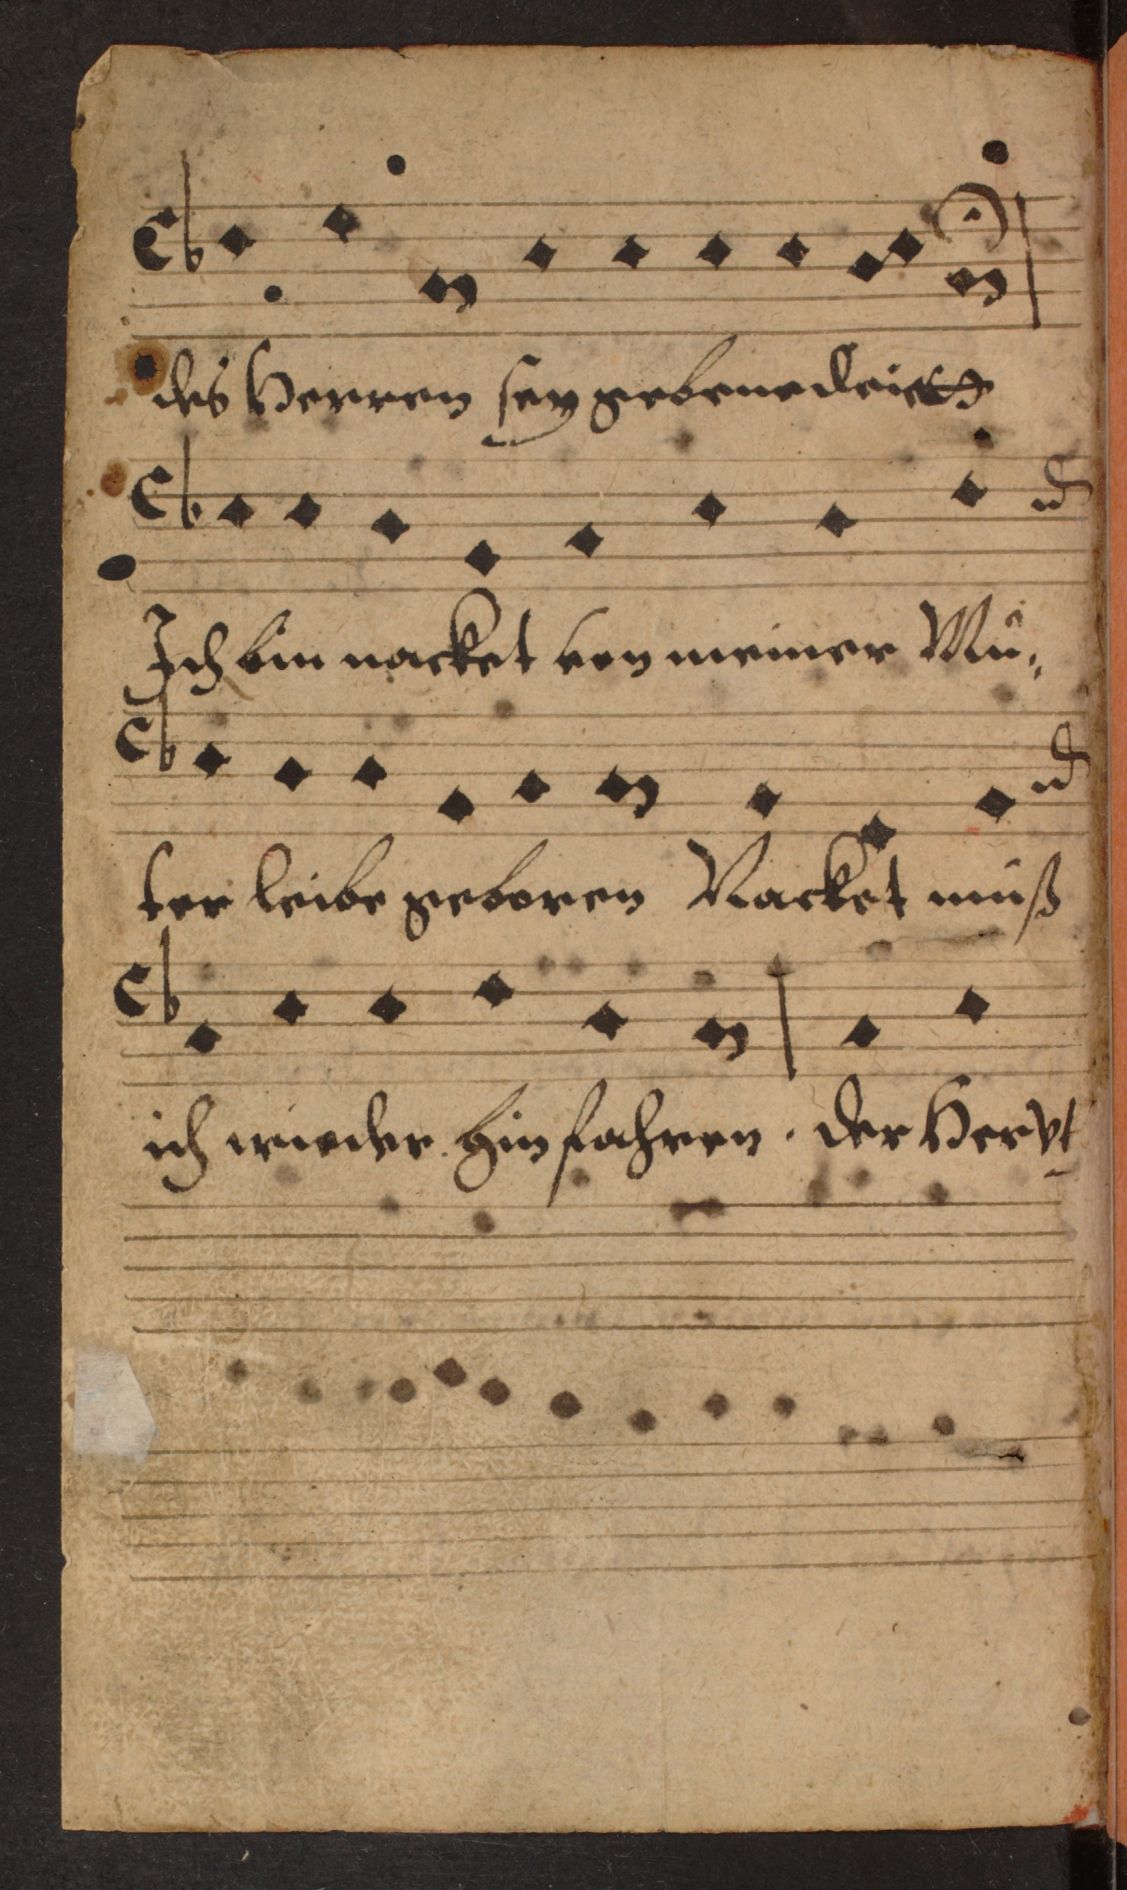 des Herren sey gebenedeiet
Ich bin nacket von meiner Mu„
ter leibe geboren Nacket muß
ich wieder hin fahren. der Herr